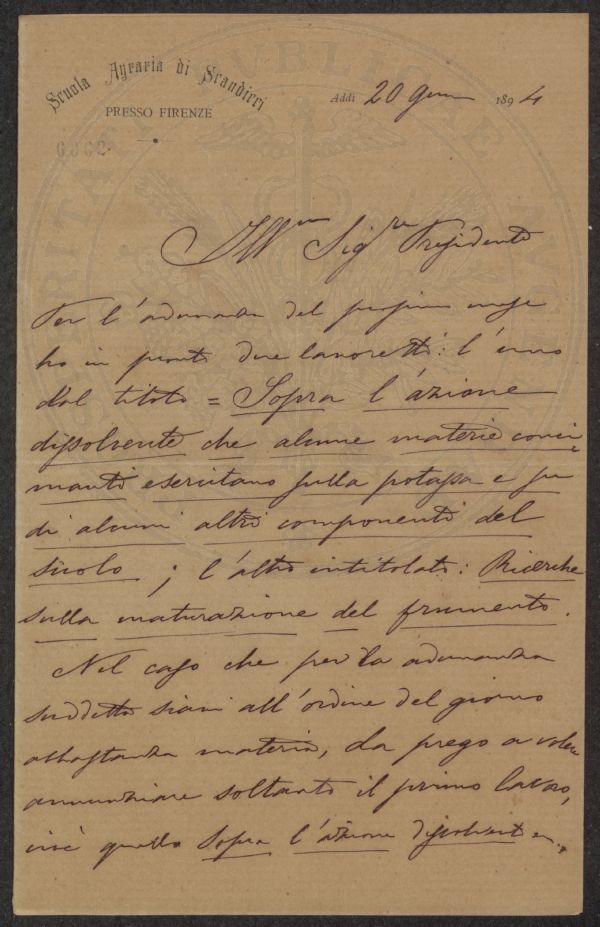 Scuola Agraria di Scandicci
PRESSO FIRENZE
Addì 20 Genn 1894
Illmo Sigre Presidente
Per l'adunanza del prossimo mese
ho in pronto due lavoretti: l'uno
dal titolo = Sopra l'azione
dissolvente che alcune materie conci-
manti esercitano sulla potassa e su
di alcuni altri componenti del
suolo; l'altro intitolato: Ricerche
sulla maturazione del frumento.
Nel caso che per la adunanza
suddetta siavi all'ordine del giorno
abbastanza materia, La prego a voler
annunziare soltanto il primo lavoro,
cioè quello Sopra l'azione dissolvente